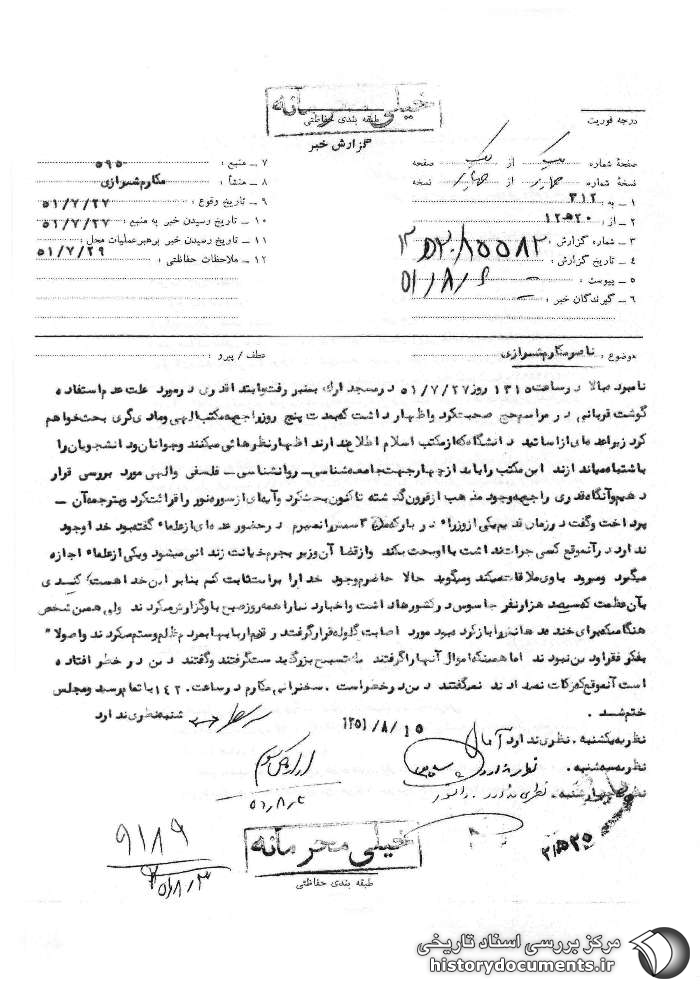 خیلی محرمانه
طبقه بندی حفاظتی
درجه فوریت
گزارش خبر
صفحهٔ شماره یک از یک صفحه
نسخهٔ شماره چهار از چهار نسخه
۱ ـ به : ۳۱۲
۲ ـ از : ۲۰ﻫ۱۲
۳ ـ شماره گزارش :
۴ ـ تاریخ گزارش : ۵۱/۸/۶
۵ ـ پیوست : ـ
۶ ـ گیرندگان خبر : ـ
۷ ـ منبع : ۵۹۵۰
۸ ـ منشأ : مکارم شیرازی
۹ ـ تاریخ وقوع : ۵۱/۷/۲۷
۱۰ ـ تاریخ رسیدن خبر به منبع : ۵۱/۷/۲۷
۱۱ ـ تاریخ رسیدن خبر برهبر عملیات محل : ۵۱/۷/۲۹
۱۲ ـ ملاحظات حفاظتی :
موضوع : ناصر مکارم شیرازی
عطف / پیرو :
نامبرده بالا در ساعت ۱۳۱۵ روز ۵۱/۷/۲۷ در مسجد ارک بمنبر رفت و ابتدا قدری در مورد علت عدم استفاده
گوشت قربانی در مراسم حج صحبت کرد و اظهار داشت که بمدت پنج روز راجع به مکتب الهی و مادیگری بحث خواهم
کرد زیرا عده‌ای از اساتید دانشگاه که از مکتب اسلام اطلاع ندارند اظهار نظرهائی میکنند و جوانان و دانشجویان را
باشتباه میاندازند این مکتب را باید از چهار جهت جامعه‌شناسی ـ روانشناسی ـ فلسفی والهی مورد بررسی قرار
دهیم و آنگاه قدری راجع به وجود مذهب از قرون گذشته تاکنون بحث کرد و آیه‌ای از سوره نور را قرائت کرد و بترجمه آن ـ
پرداخت و گفت در زمان قدیم یکی از وزراء در بارگاه در حضور عده‌ای از علماء گفته بود خدا وجود
ندارد در آنموقع کسی جرات نداشت با او بحث بکند و از قضا آن وزیر بجرم خیانت زندانی میشود و یکی از علماء اجازه
میگیرد و میرود با وی ملاقات میکند و میگوید حالا حاضرم وجود خدا را برایت ثابت کنم بنابراین خدا هست؛ کندی
بآن عظمت که سیصد هزار نفر جاسوس در کشورها داشت و اخبار دنیا را همه روز صبح باو گزارش میکردند ولی همین شخص
هنگامیکه برای خنده دهانش را باز کرده بود مورد اصابت گلوله قرار گرفت در قدیم اربابها بمردم ظلم و ستم میکردند و اصولا"
بفکر فقرا و دین نبودند اما همینکه اموال آنها را گرفتند تسبیح بزرگ بدست گرفتند و گفتند دین در خطر افتاده
است آنموقع که زکات نمیدادند نمیگفتند دین در خطر است . سخنرانی مکارم در ساعت ۱۴۲۰ باتمام رسید و مجلس
ختم شد .
شنبه نظری ندارد
نظریه یکشنبه . نظری ندارد
نظریه سه‌شنبه . نظری ندارد
نظریه چهارشنبه . نظری ندارد
۱۳۵۱/۸/۱۵
۹۱۸۹
۵۱/۸/۳
خیلی محرمانه
طبقه بندی حفاظتی
مرکز بررسی اسناد تاریخی
historydocuments.ir